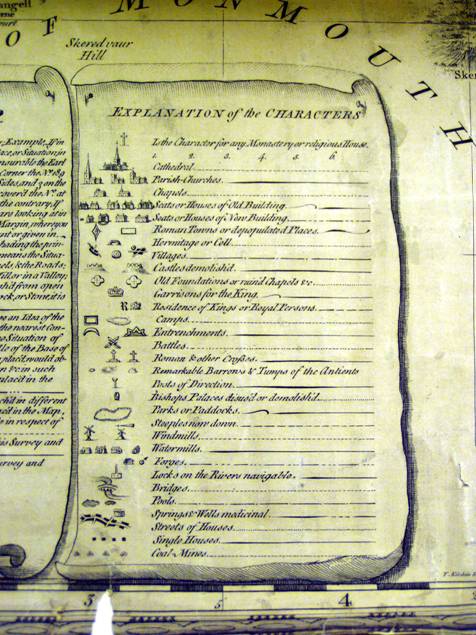 angell
O F M O N M O U T H
Skered vaur
Hill
Sker
EXPLANATION of the CHARACTERS
Is the Character for any Monastery or religious House.
1. 2. 3. 4. 5. 6.
Cathedral
Parish-Churches
Chapels
Seats or Houses of Old Building
Seats or Houses of New Building
Roman Towns or depopulated Places
Hermitage or Cell
Villages
Castles demolish'd
Old Foundations or ruin'd Chapels &c
Garrisons for the King
Residence of Kings or Royal Persons
Camps
Entrenchments
Battles
Roman & other Crosses
Remarkable Barrows & Tumps of the Antients
Posts of Direction
Bishops Palaces disus'd or demolish'd
Parks or Paddocks
Steeples now down
Windmills
Watermills
Forges
Locks on the Rivers navigable
Bridges
Pools
Springs & Wells medicinal
Streets of Houses
Single Houses
Coal-Mines
Example, If in
Place, or Situation, in
Corner the No. 89
the contrary. If
are looking at in
Margin, where you
hading the prin-
means the Situa-
els, & the Roads;
Hill, or in a Valley,
sh'd from open
ock, or Stone, it is
ve an Idea of the
the nearest Con-
Situation of
lls of the Base of
plac'd, would ob-
n &c in such
plac'd in the
ch'd in different
c'd in the Map,
e in respect of
is Survey and
urvey and
3 5 4
T. Kitchin